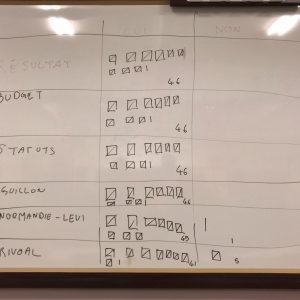 OUI NON
RÉSULTAT 46
BUDGET 46
STATUTS 46
GUILLON 46
NORMANDIE-LEVI 45 1
RIVOAL 41 5